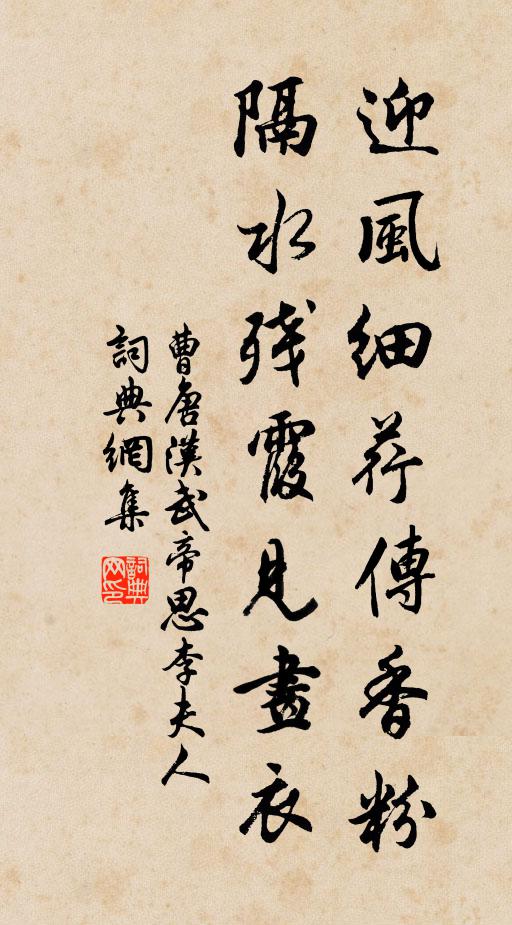 迎風細荇傳香粉
隔水残霞見畫衣
曹唐漢武帝思李夫人
詞典網集
詞典网印